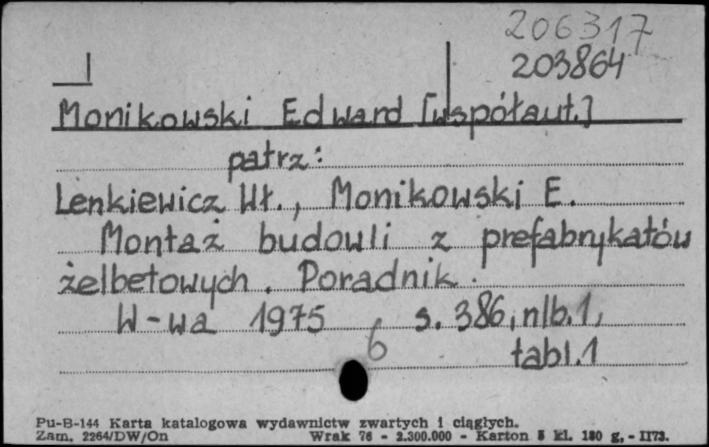 206317
203864
Monikowski Edward [współaut.]
patrz:
Lenkiewicz Wł., Monikowski E.
Montaż budowli z prefabrykatów
żelbetowych. Poradnik.
W-wa 1975 s. 386, nlb. 1,
6 tabl. 1
Pu-B-144 Karta katalogowa wydawnictw zwartych i ciągłych.
Zam. 2264/DW/On Wrak 76 - 2.300.000 - Karton kl. 180 g. - II73.